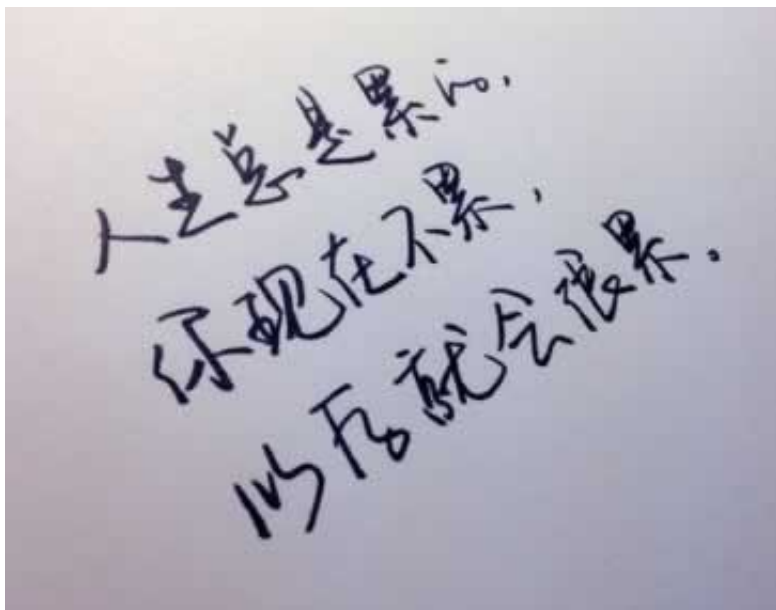 人生总是累的，
你现在不累，
以后就会很累。